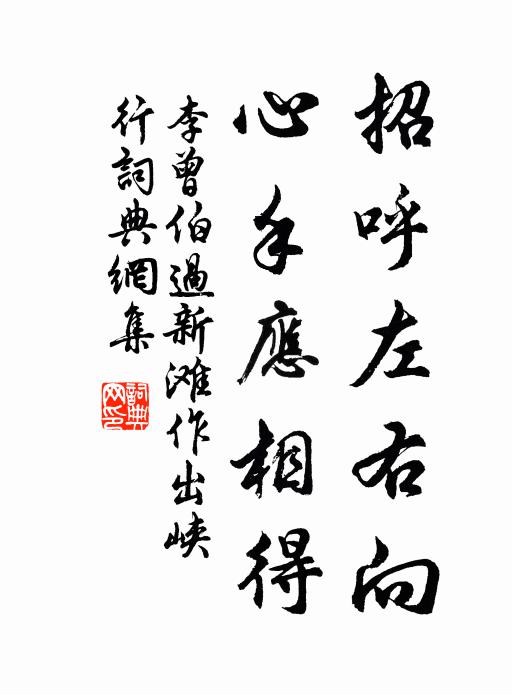 招呼左右向
心手應相得
李曾伯過新滩作出峡
行詞典網集
詞典網印